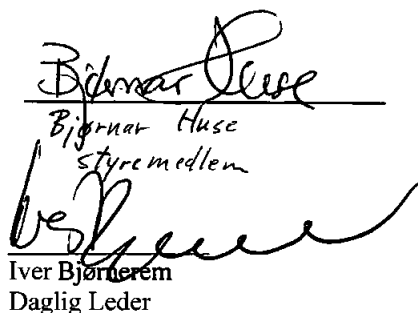 Bjørnar Huse
Bjørnar Huse
styremedlem
Iver Bjørnerem
Daglig Leder